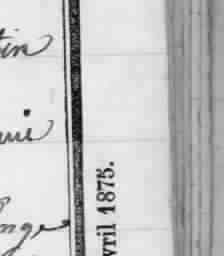 tin
nge
vril 1875.